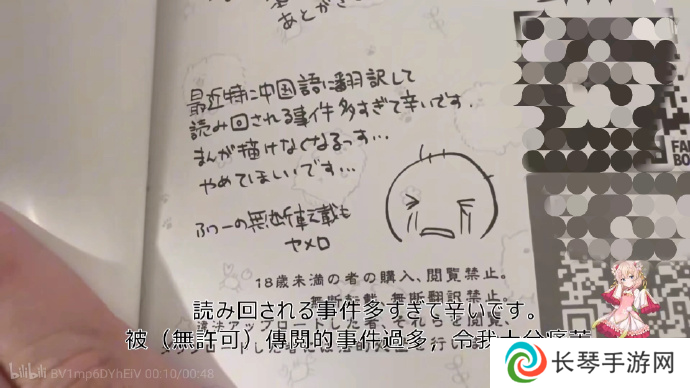 あとがき
最近特に中国語に翻訳して
読み回される事件多すぎて辛いです.
まんが描けなくなるっす…
やめてほしいです…
ふつーの無断転載も
ヤメロ
18歳未満の者の購入、閲覧禁止。
無断転載、無断翻訳禁止。
読み回される事件多すぎて辛いです。
被（無許可）傳閱的事件過多，令我十分痛苦
bilibili BV1mp6DYhEiV 00:10/00:48
FAN
BO
长琴手游网